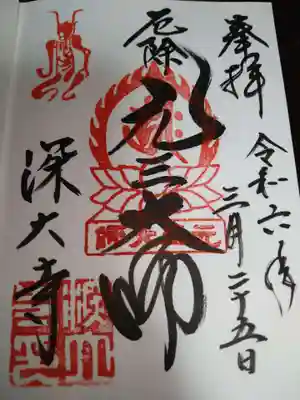 奉拝
令和六年
三月二十五日
厄除
元三大師
深大寺